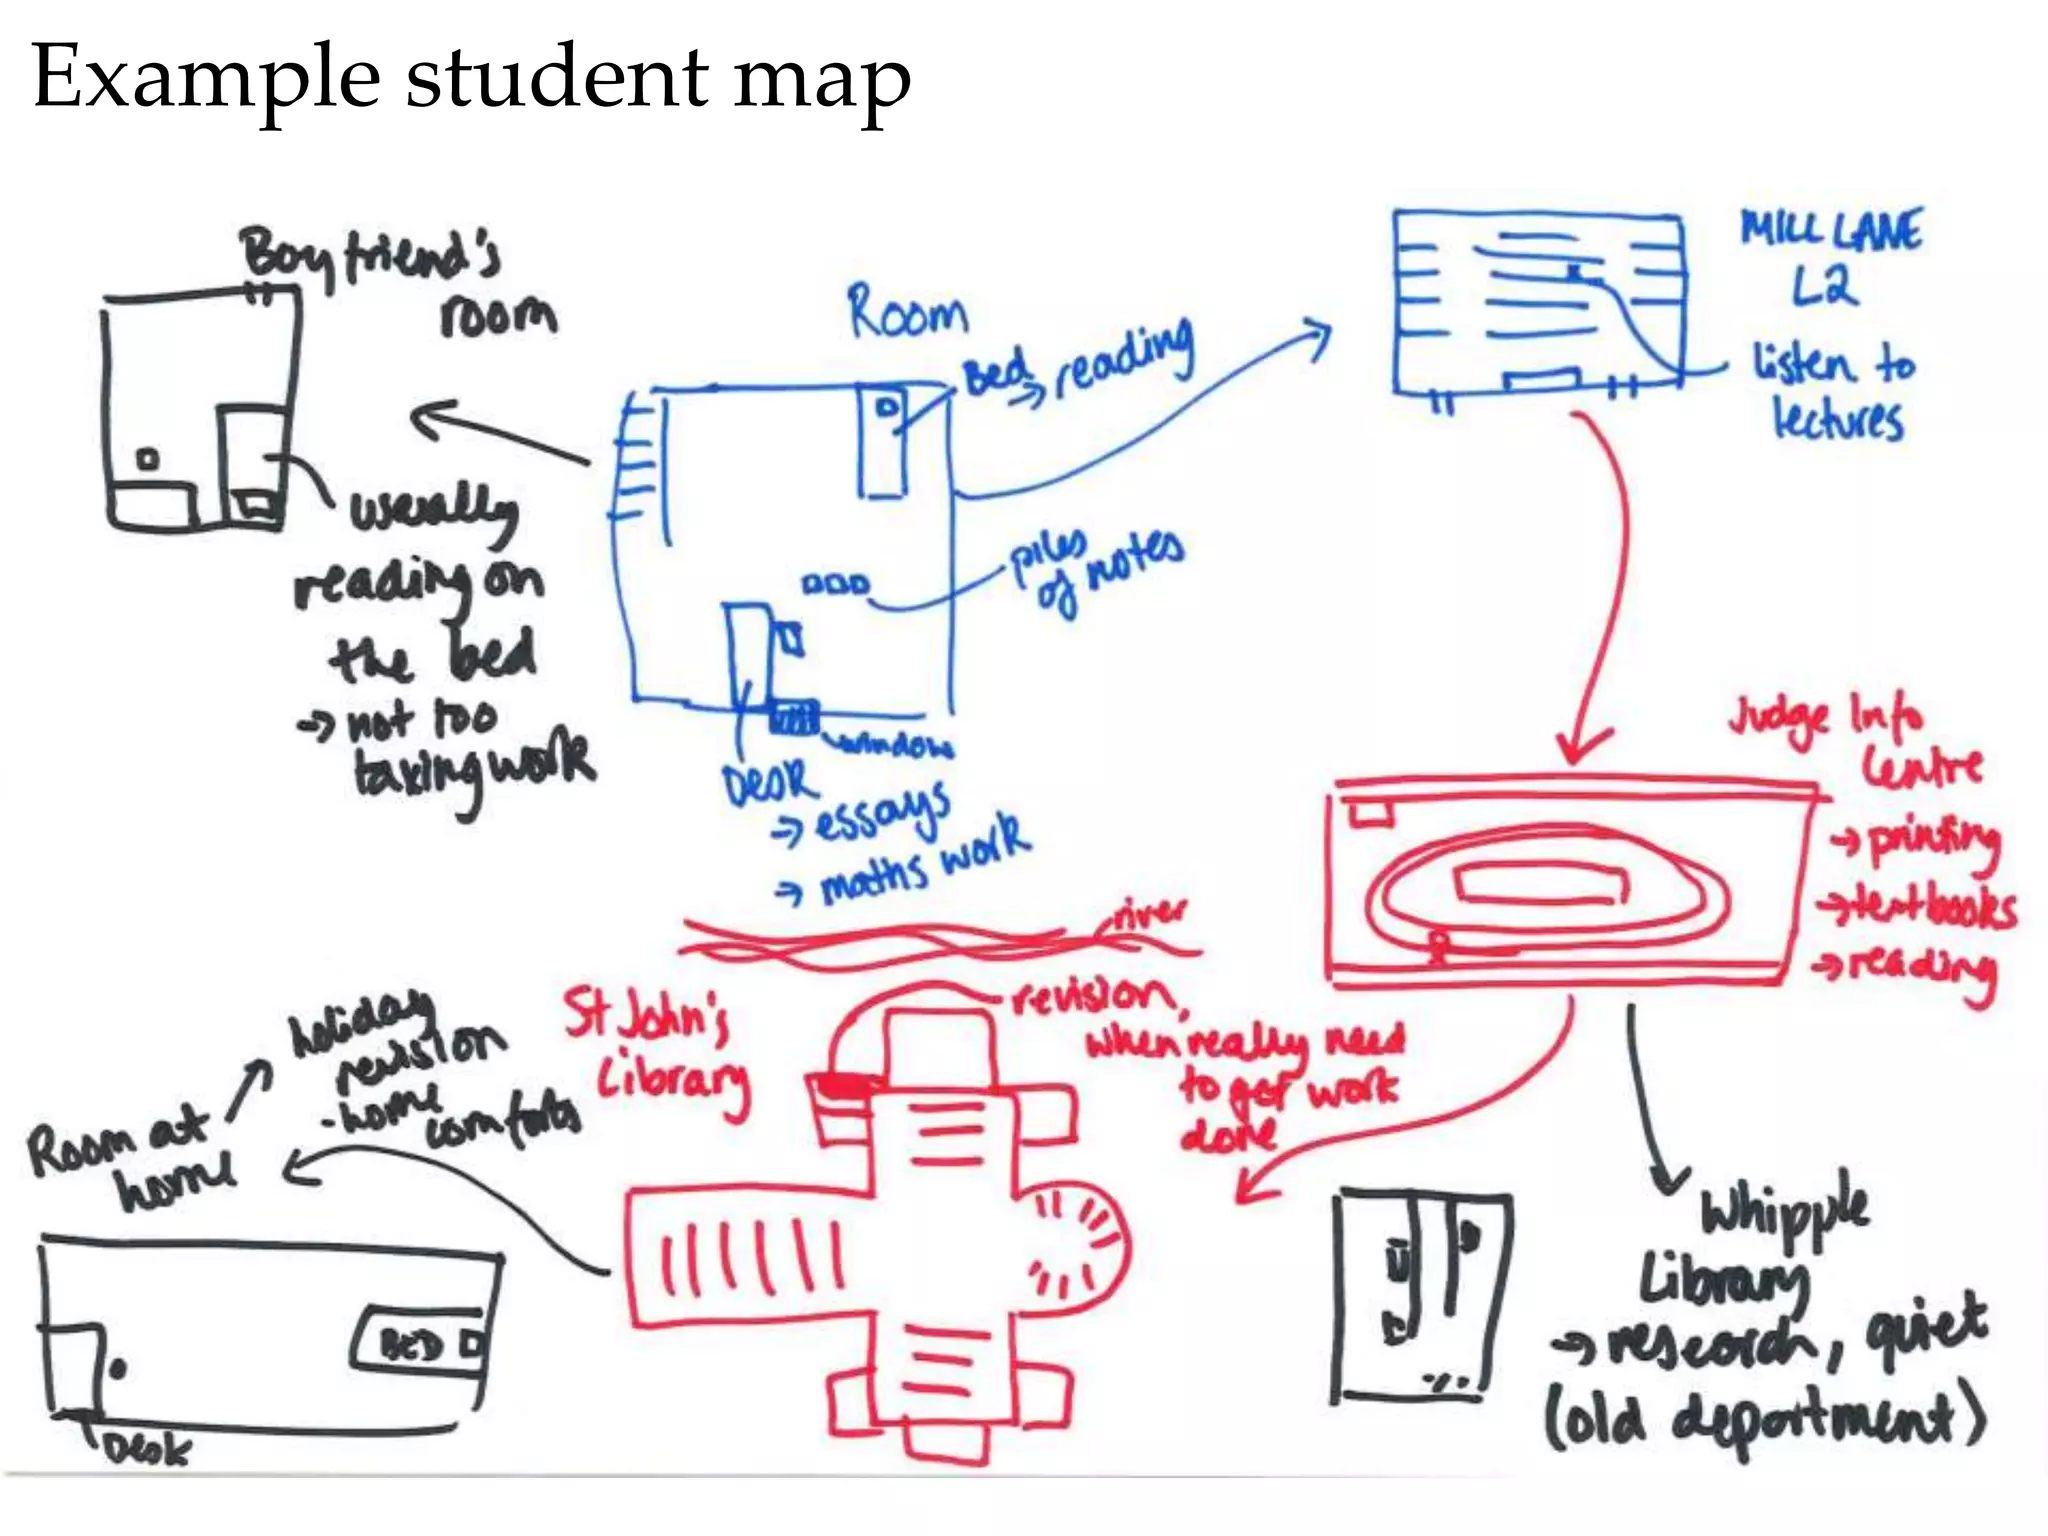 Example student map
Boyfriend's
room
usually
reading on
the bed
→ not too
taxing work
Room
Bed
→ reading
piles
of notes
window
Desk
→ essays
→ maths work
MILL LANE
L2
listen to
lectures
Judge Info
Centre
→ printing
→ textbooks
→ reading
river
St John's
Library
revision,
when really need
to get work
done
holiday
revision
- home
comforts
Room at
home
BED
Desk
Whipple
Library
→ research, quiet
(old department)